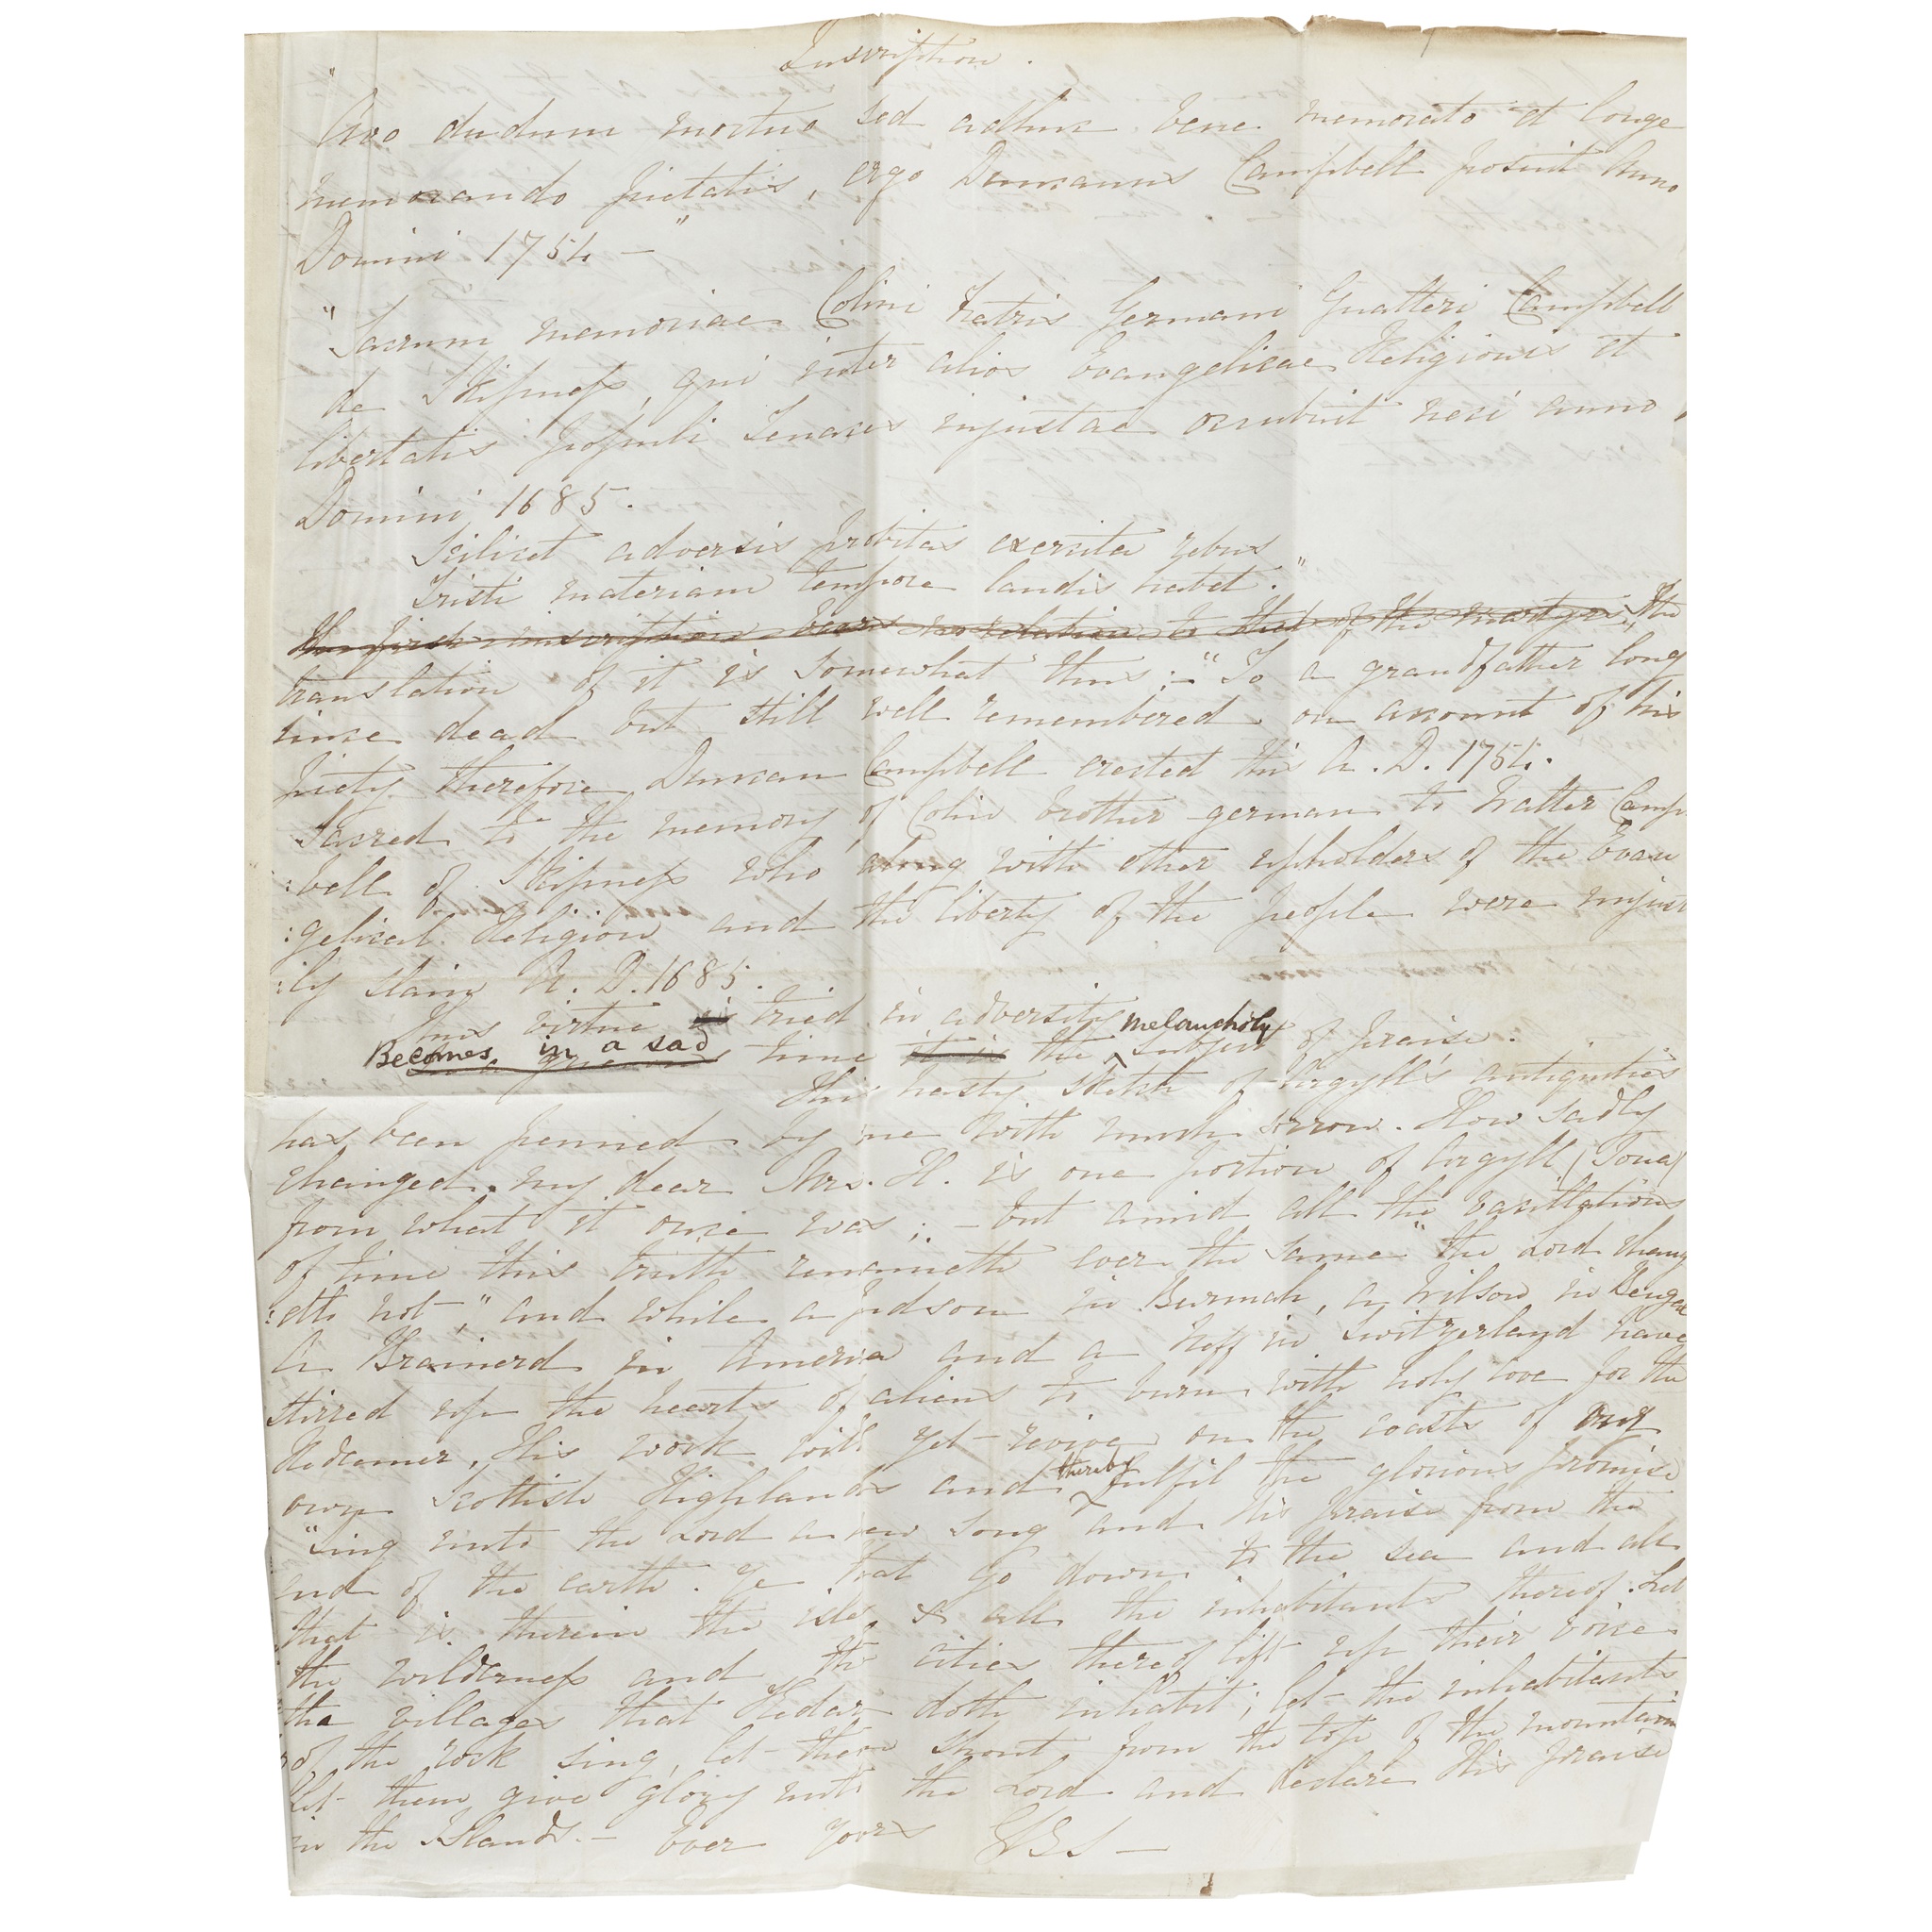 Inscription.
"Avo dudum mortuo sed adhuc bene memorato et longe
memorando pietatis, ergo Duncanus Campbell posuit Anno
Domini 1754 — "
"Sacrum memoriae Colini Fratris Germani Gualteri Campbell
de Skipness, qui inter alios Evangelicae Religionis et
libertatis populi Tenaces injustae occubuit neci anno
Domini 1685.
Scilicet adversis probitas exercita rebus
Tristi materiam tempore laudis habet."
The first inscription bears no relation to that of the martyrs. The
translation of it is somewhat thus:—"To a grandfather long
since dead but still well remembered on account of his
piety therefore Duncan Campbell erected this A.D. 1754.
Sacred to the memory of Colin brother german to Walter Camp
:bell of Skipness who along with other upholders of the Evan
:gelical Religion and the liberty of the people were unjust
:ly slain A.D. 1685.
Thus virtue is tried in adversity melancholy
Becomes in a sad time it is the ^ subject of praise.
This hasty sketch of Argyll's antiquities
has been penned by me with much sorrow. How sadly
changed, my dear Mrs. H. is one portion of Argyll (Iona)
from what it once was; – but amid all the vacillations
of time this truth remaineth ever the same "the Lord chang
:eth not", and while a Judson in Burmah, a Wilson in Bengal
A Brainerd in America and a Neff in Switzerland have
stirred up the hearts of aliens to burn with holy love for the
Redeemer, His work will yet revive on the coasts of our
own Scottish Highlands and thereby ^ fulfil the glorious promise
"Sing unto the Lord a new song and His praise from the
end of the earth. Ye that go down to the sea and all
that is therein the isles & all the inhabitants thereof. Let
the wilderness and the cities thereof lift up their voice
the villages that Kedar doth inhabit; let the inhabitants
of the rock sing, let them shout from the top of the mountains
Let them give glory unto the Lord and declare His praise
in the Islands. – Ever yours